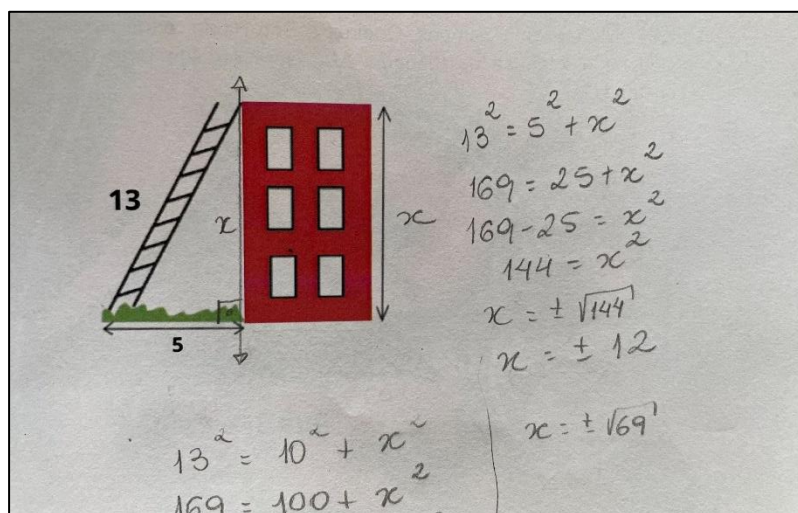 13
x
x
5
13² = 5² + x²
169 = 25 + x²
169 - 25 = x²
144 = x²
x = ± √144
x = ± 12
13² = 10² + x²
169 = 100 + x²
x = ± √69